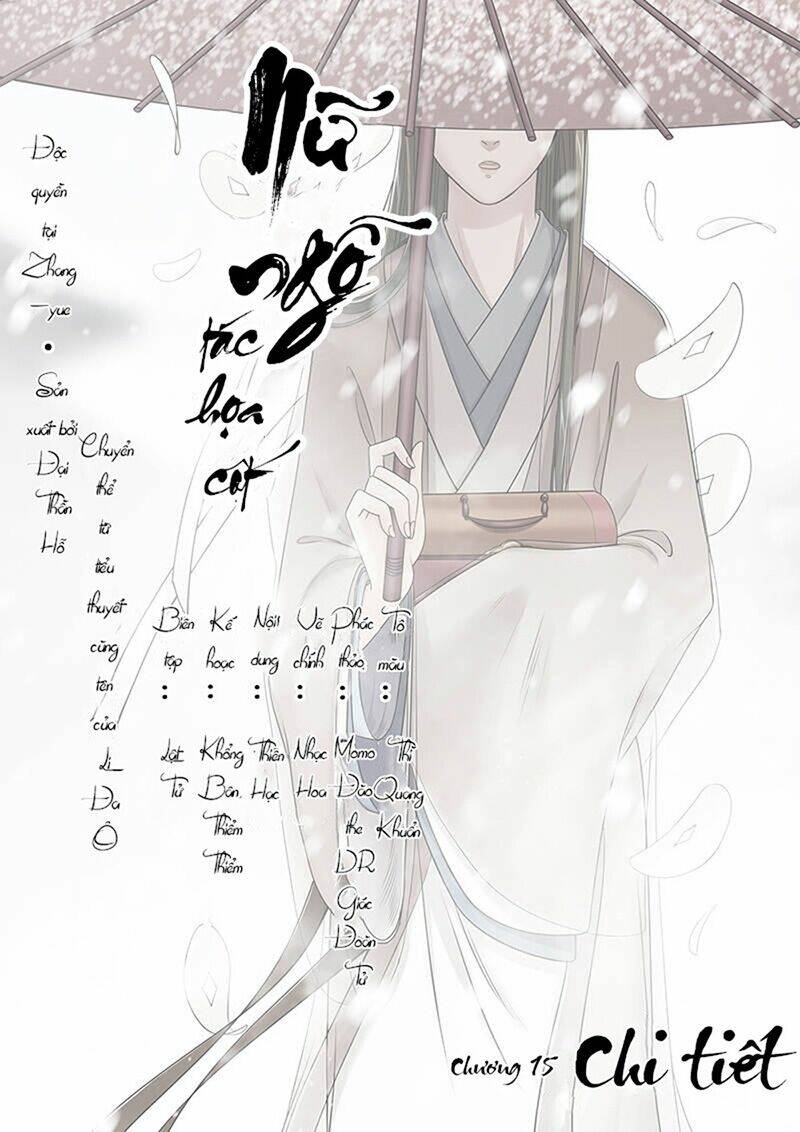 Nữ
ngỗ
tác
họa
cốt
Độc quyền tại Zhang-yue • Sản xuất bởi Đại Thần Hỗ
Chuyển thể từ tiểu thuyết cùng tên của Li Đa Ô
Biên tập : Lật Tử
Kế hoạc : Khổng Bân, Thiểm Thiểm
Nội dung : Thiền Hạc
Vẽ chính : Nhạc Hoa
Phác thảo : Momo Đào the DR Giác Đoàn Tử
Tô màu : Thì Quang Khuẩn
Chương 15 Chi tiết